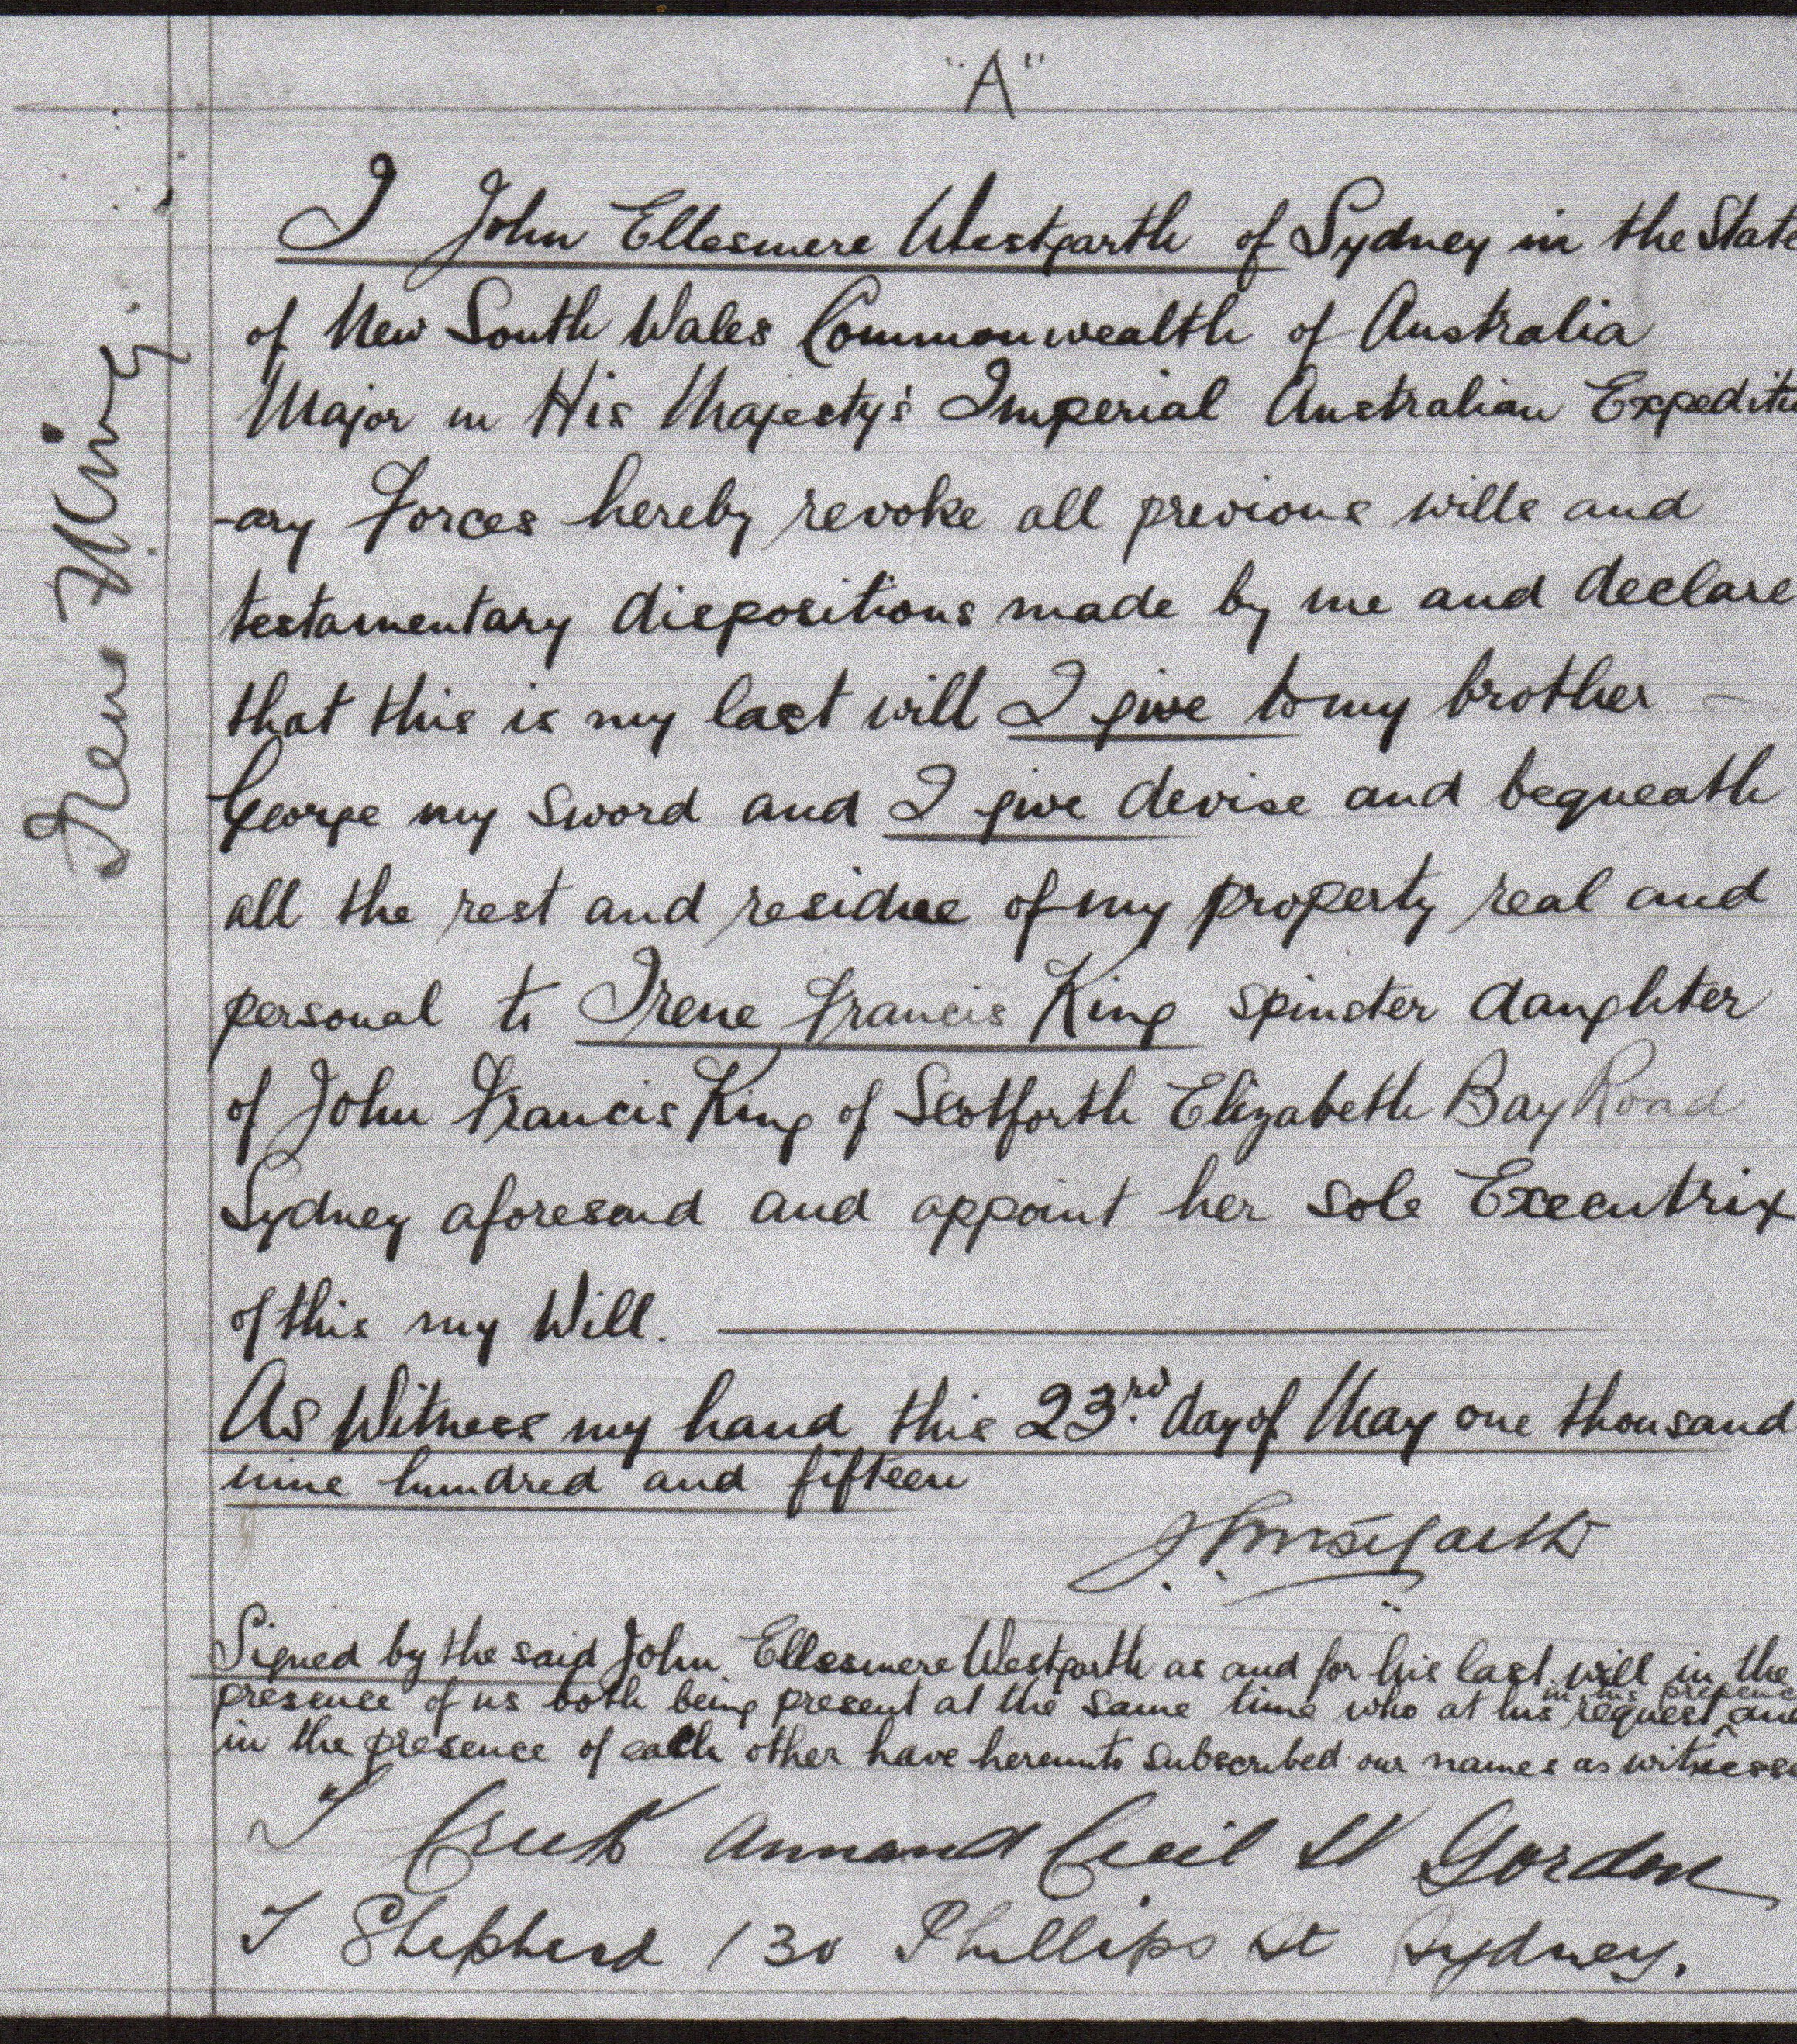 "A"
I John Ellesmere Westgarth of Sydney in the State
of New South Wales Commonwealth of Australia
Major in His Majesty's Imperial Australian Expeditu
-ary Forces hereby revoke all previous wills and
testamentary dispositions made by me and declare
that this is my last will I give to my brother –
George my sword and I give devise and bequeath
all the rest and residue of my property real and
personal to Irene Francis King spinster daughter
of John Francis King of Scotforth Elizabeth Bay Road
Sydney aforesaid and appoint her sole Executrix
of this my Will.
As Witness my hand this 23rd day of May one thousand
nine hundred and fifteen
Westgarth
Signed by the said John Ellesmere Westgarth as and for his last will in the
presence of us both being present at the same time who at his request in his presence and
in the presence of each other have hereunto subscribed our names as witnesse
Armand Cecil Gordon
T Shepherd 130 Phillips St Sydney.
Irene King